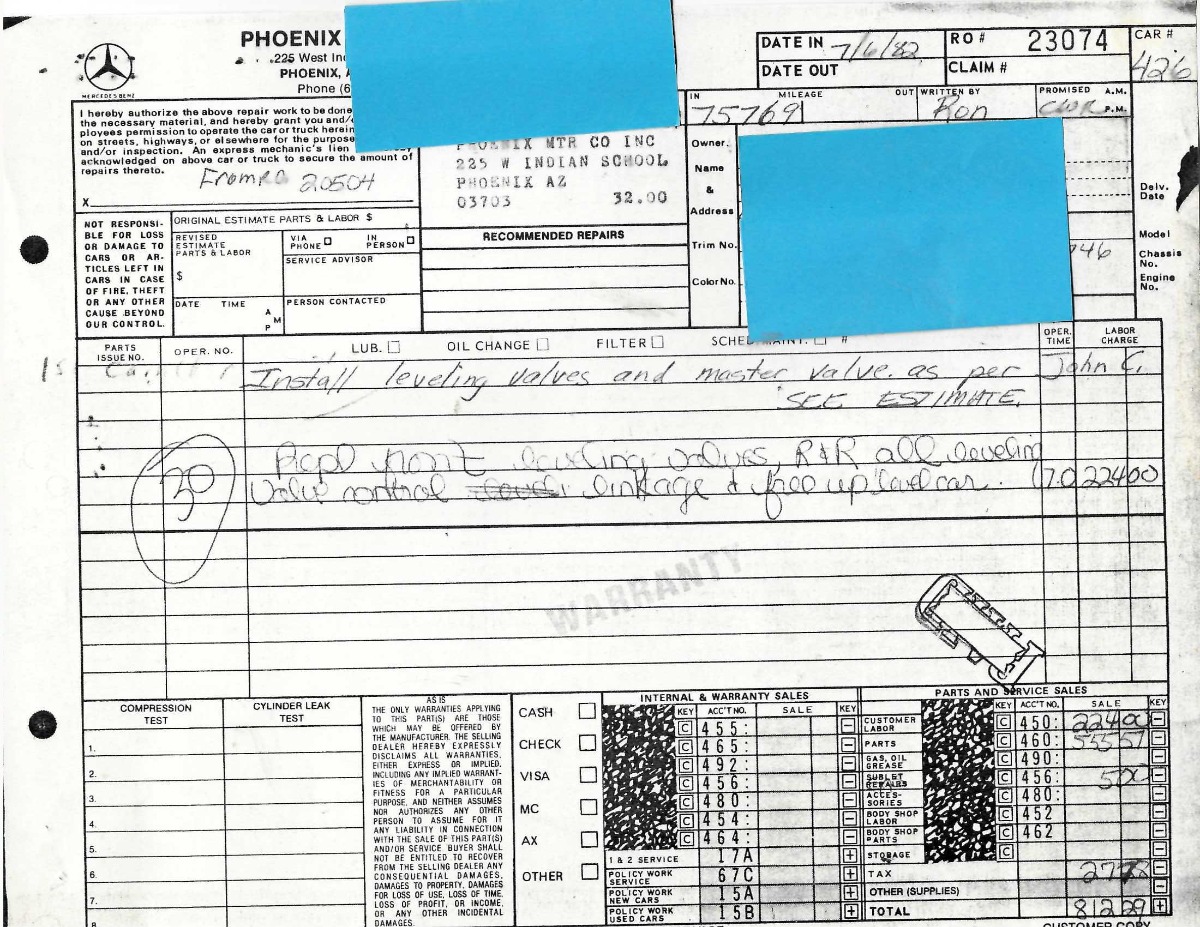 PHOENIX
225 West
PHOENIX,
Phone (6
MERCEDES BENZ
DATE IN 7/6/82
DATE OUT
RO # 23074
CLAIM #
CAR #
426
IN MILEAGE OUT
75769
WRITTEN BY
Ron
PROMISED A.M.
P.M.
I hereby authorize the above repair work to be done
the necessary material, and hereby grant you and/
ployees permission to operate the car or truck herein
on streets, highways, or elsewhere for the purpose
and/or inspection. An express mechanic's lien
acknowledged on above car or truck to secure the amount of
repairs thereto.
From RO 20504
X
PHOENIX MTR CO INC
225 W INDIAN SCHOOL
PHOENIX AZ
03703 32.00
Owner.
Name
&
Address
Trim No.
Color No.
Delv.
Date
Model
Chassis
No.
Engine
No.
746
NOT RESPONSI-
BLE FOR LOSS
OR DAMAGE TO
CARS OR AR-
TICLES LEFT IN
CARS IN CASE
OF FIRE, THEFT
OR ANY OTHER
CAUSE BEYOND
OUR CONTROL.
ORIGINAL ESTIMATE PARTS & LABOR $
REVISED
ESTIMATE
PARTS & LABOR
$
VIA
PHONE
IN
PERSON
SERVICE ADVISOR
DATE TIME A
M
P
PERSON CONTACTED
RECOMMENDED REPAIRS
PARTS
ISSUE NO.
OPER. NO.
LUB. OIL CHANGE FILTER SCHED MAINT. #
OPER.
TIME
LABOR
CHARGE
Install leveling valves and master valve. as per John C.
SEE ESTIMATE.
30
Repl front leveling valves, R&R all leveling
valve control linkage & free up level car. 17.0 22400
WARRANTY
COMPRESSION
TEST
1.
2.
3.
4.
5.
6.
7.
8.
CYLINDER LEAK
TEST
AS IS
THE ONLY WARRANTIES APPLYING
TO THIS PART(S) ARE THOSE
WHICH MAY BE OFFERED BY
THE MANUFACTURER. THE SELLING
DEALER HEREBY EXPRESSLY
DISCLAIMS ALL WARRANTIES,
EITHER EXPRESS OR IMPLIED,
INCLUDING ANY IMPLIED WARRANT-
IES OF MERCHANTABILITY OR
FITNESS FOR A PARTICULAR
PURPOSE, AND NEITHER ASSUMES
NOR AUTHORIZES ANY OTHER
PERSON TO ASSUME FOR IT
ANY LIABILITY IN CONNECTION
WITH THE SALE OF THIS PART(S)
AND/OR SERVICE. BUYER SHALL
NOT BE ENTITLED TO RECOVER
FROM THE SELLING DEALER ANY
CONSEQUENTIAL DAMAGES,
DAMAGES TO PROPERTY, DAMAGES
FOR LOSS OF USE, LOSS OF TIME,
LOSS OF PROFIT, OR INCOME,
OR ANY OTHER INCIDENTAL
DAMAGES.
CASH
CHECK
VISA
MC
AX
OTHER
INTERNAL & WARRANTY SALES
KEY ACC'T NO. SALE KEY
C 455:
C 465:
C 492:
C 456:
C 480:
C 454:
C 464:
1 & 2 SERVICE 17A
POLICY WORK
SERVICE 67C
POLICY WORK
NEW CARS 15A
POLICY WORK
USED CARS 15B
PARTS AND SERVICE SALES
KEY ACC'T NO. SALE KEY
CUSTOMER
LABOR C 450: 22400
PARTS C 460: 55551
GAS, OIL
GREASE C 490:
SUBLET
REPAIRS C 456: 500
ACCES-
SORIES C 480:
BODY SHOP
LABOR C 452
BODY SHOP
PARTS C 462
STORAGE C
TAX 2778
OTHER (SUPPLIES)
TOTAL 81229
CUSTOMER COPY